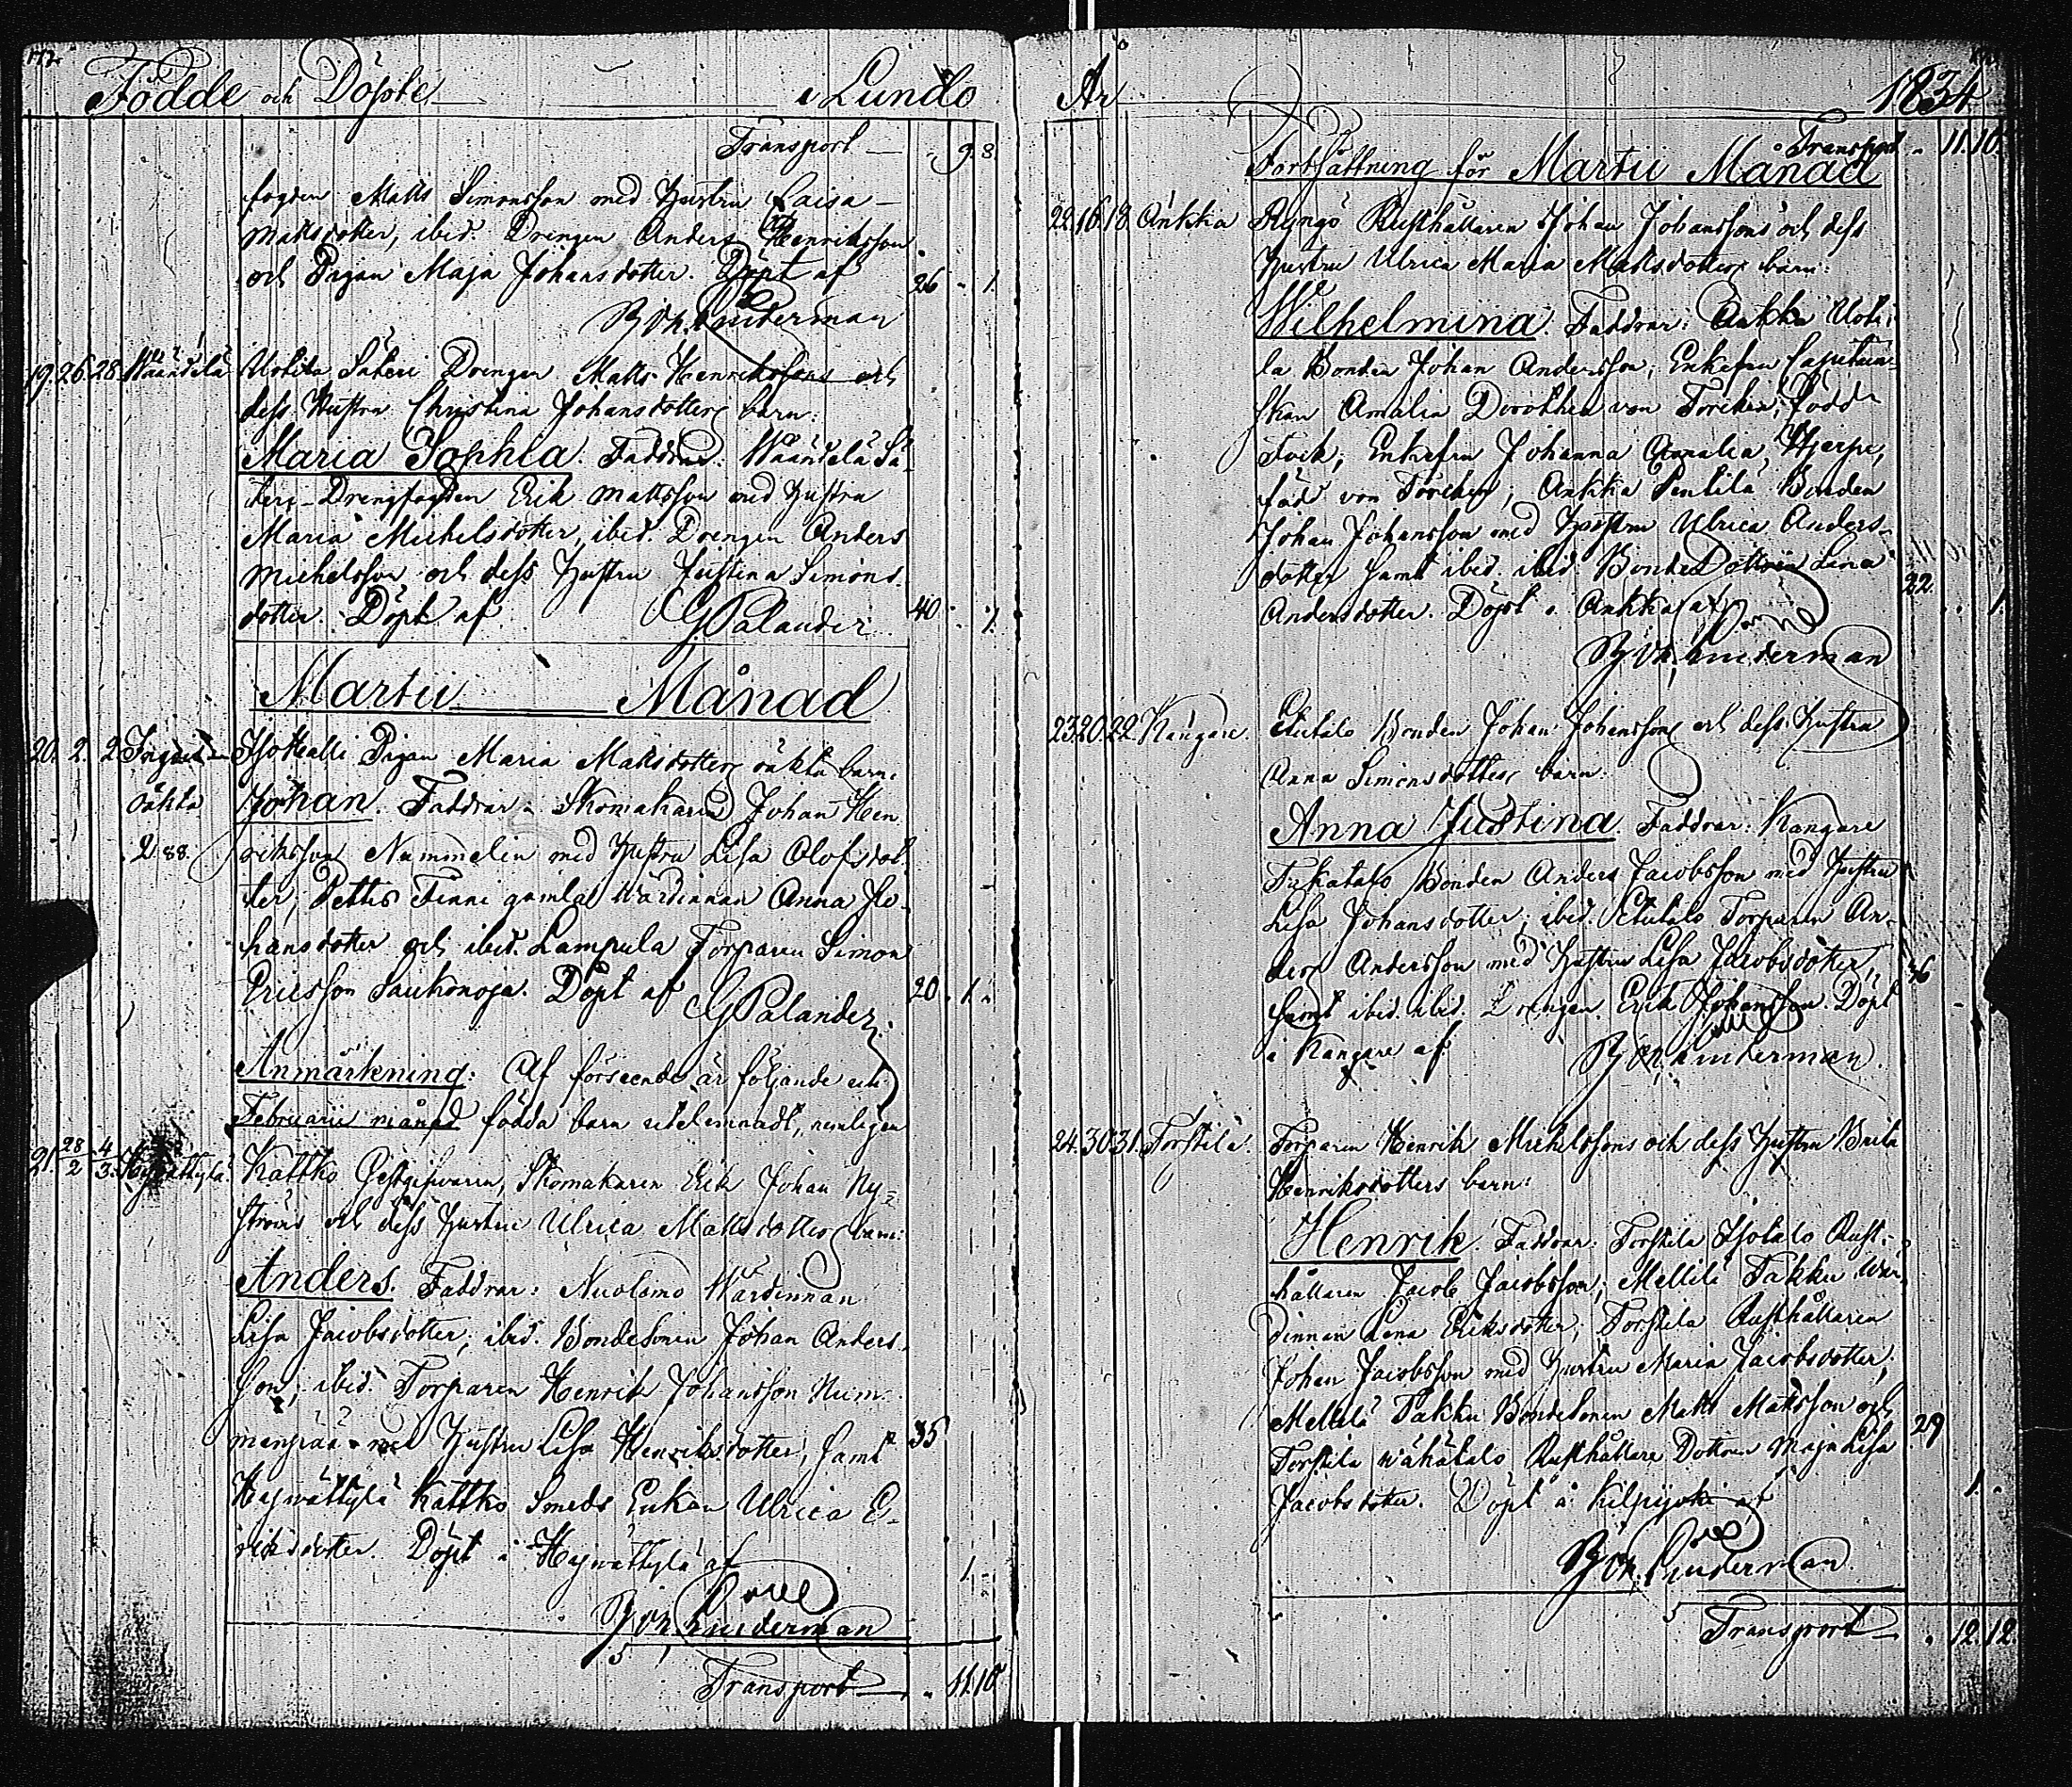 Födde och Döpte i Lundo
Transport 9. 8.
fogden Matts Simonsson med hustru Caisa
Mattsdotter, ibid. Drengen Anders Henriksson
och Pigan Maja Johansdotter. Döpt af 26 1
Joh. Linderman
19. 26. 28. Wäändelä Säteri Drengen Matts Henrikssons och
dess Hustru Christina Johansdotters barn:
Maria Sophia. Faddrar: Wäändelä Sä-
teri-Drengfogden Erik Mattsson med hustru
Maria Michelsdotter, ibid. Drengen Anders
Michelsson och dess hustru Justina Simons-
dotter. Döpt af G Palander 40 1.
Martii Månad
20. 2. 2. Isotalli Pigan Maria Mattsdotters oäkta barn:
oäkta Johan. Faddrar: Skomakaren Johan Hen-
2 88. riksson Nummelin med hustru Lisa Olofsdot-
ter, Pettis Finni gamla Wärdinnan Anna Jo-
hansdotter och ibid. Lampula Torparen Simon
Ericsson Saukonoja. Döpt af 20 1
G Palander
Anmärkning: Af förseende är följande uti
Februarii månad födda barn utelemnadt, nemligen
21. 28/2 4/3. Kattko Gestgifvaren, Skomakaren Erik Johan Ny-
ströms och dess hustru Ulrica Mattsdotters barn:
Anders. Faddrar: Nuolemo Wärdinnan
Lisa Jacobsdotter, ibid. Bondesonen Johan Anders-
son, ibid. Torparen Henrik Johansson Num-
menpää med hustru Lisa Henriksdotter, samt 35
Hypwättylä Kattko Smeds Enkan Ulrica E-
riksdotter. Döpt i Hypwättylä af 1
Joh. Linderman
Transport 11. 10
År 1834
Transport 11. 10.
Fortsättning för Martii Månad
22. 16. 18. Ankka Ryngö Rusthållaren Johan Johanssons och dess
hustru Ulrica Maria Mattsdotters barn:
Wilhelmina. Faddrar: Ankka Uoti-
la Bonden Johan Andersson, Enkefru Capitain-
skan Amalia Dorothea von Torcken, född
Fock; Enkefru Johanna Amalia Hjerpe,
född von Torcken; Ankka Pentilä Bonden
Johan Johansson med hustru Ulrica Anders-
dotter samt ibid. ibid. Bonde Dottren Lena 22.
Andersdotter. Döpt i Ankka af 1.
Joh. Linderman
23. 20. 22. Kangare. Bonden Johan Johanssons och dess hustru
Anna Simonsdotters barn:
Anna Justina. Faddrar: Kangare
Bonden Anders Jacobsson med hustru
Lisa Johansdotter, ibid. Torparen An-
ders Andersson med hustru Lisa Jacobsdotter,
samt ibid. ibid. Drengen Erik Johansson. Döpt
i Kangare af Joh. Linderman.
24. 30. 31. Torstila. Torparen Henrik Michelssons och dess hustru Brita
Henriksdotters barn:
Henrik. Faddrar: Torstila Isotalo Rust-
hållaren Jacob Jacobsson; Mellilä Takku Wär-
dinnan Lena Eriksdotter; Torstila Rusthållaren
Johan Jacobsson med hustru Maria Jacobsdotter;
Mellilä Takku Bondesonen Matts Mattsson och
Torstila Wähätalo Rusthållare Dottren Maja Lisa 29
Jacobsdotter. Döpt i Kilpijoki af 1.
Joh. Linderman.
Transport 12. 12.